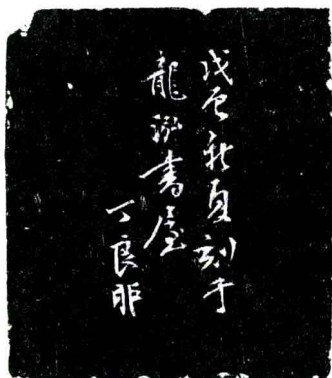 戊戌秋夏刻于
龍泓書屋
丁良卯